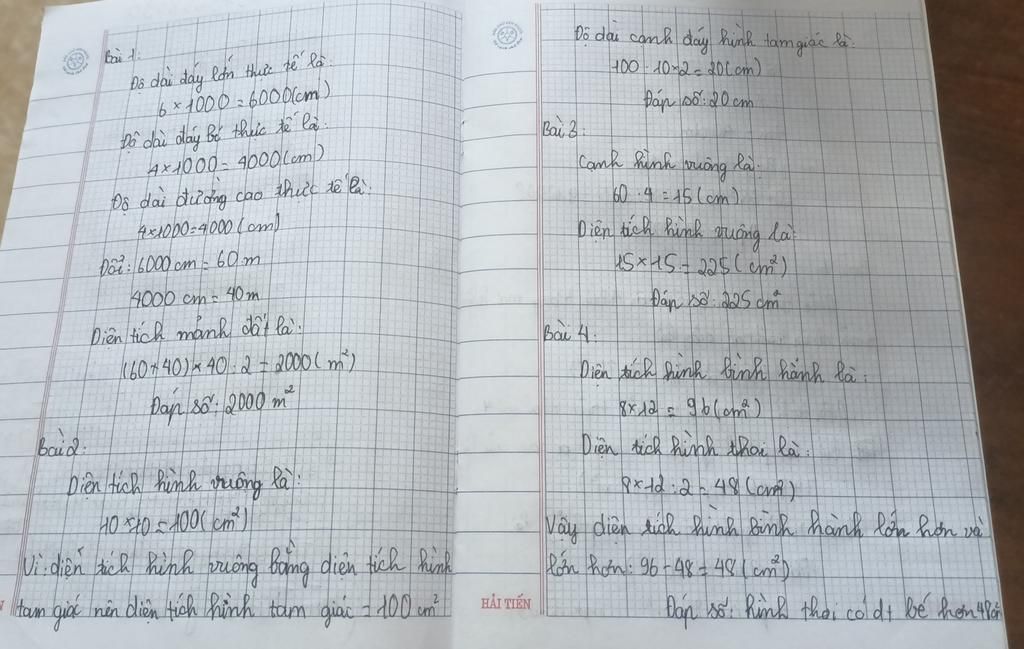 Bài 1:
Độ dài đáy lớn thực tế là:
6 × 1000 = 6000 (cm)
Độ dài đáy bé thực tế là:
4 × 1000 = 4000 (cm)
Độ dài đường cao thực tế là:
4 × 1000 = 4000 (cm)
Đổi: 6000 cm = 60 m
4000 cm = 40 m
Diện tích mảnh đất là:
(60 + 40) × 40 : 2 = 2000 (m²)
Đáp số: 2000 m²
Bài 2:
Diện tích hình vuông là:
10 × 10 = 100 (cm²)
Vì diện tích hình vuông bằng diện tích hình
tam giác nên diện tích hình tam giác = 100 cm²
Độ dài cạnh đáy hình tam giác là:
100 : 10 × 2 = 20 (cm)
Đáp số: 20 cm
Bài 3:
Cạnh hình vuông là:
60 : 4 = 15 (cm)
Diện tích hình vuông là:
15 × 15 = 225 (cm²)
Đáp số: 225 cm²
Bài 4:
Diện tích hình bình hành là:
8 × 12 = 96 (cm²)
Diện tích hình thoi là:
8 × 12 : 2 = 48 (cm²)
Vậy diện tích hình bình hành lớn hơn và
lớn hơn: 96 - 48 = 48 (cm²)
Đáp số: hình thoi có dt bé hơn 48
HẢI TIẾN